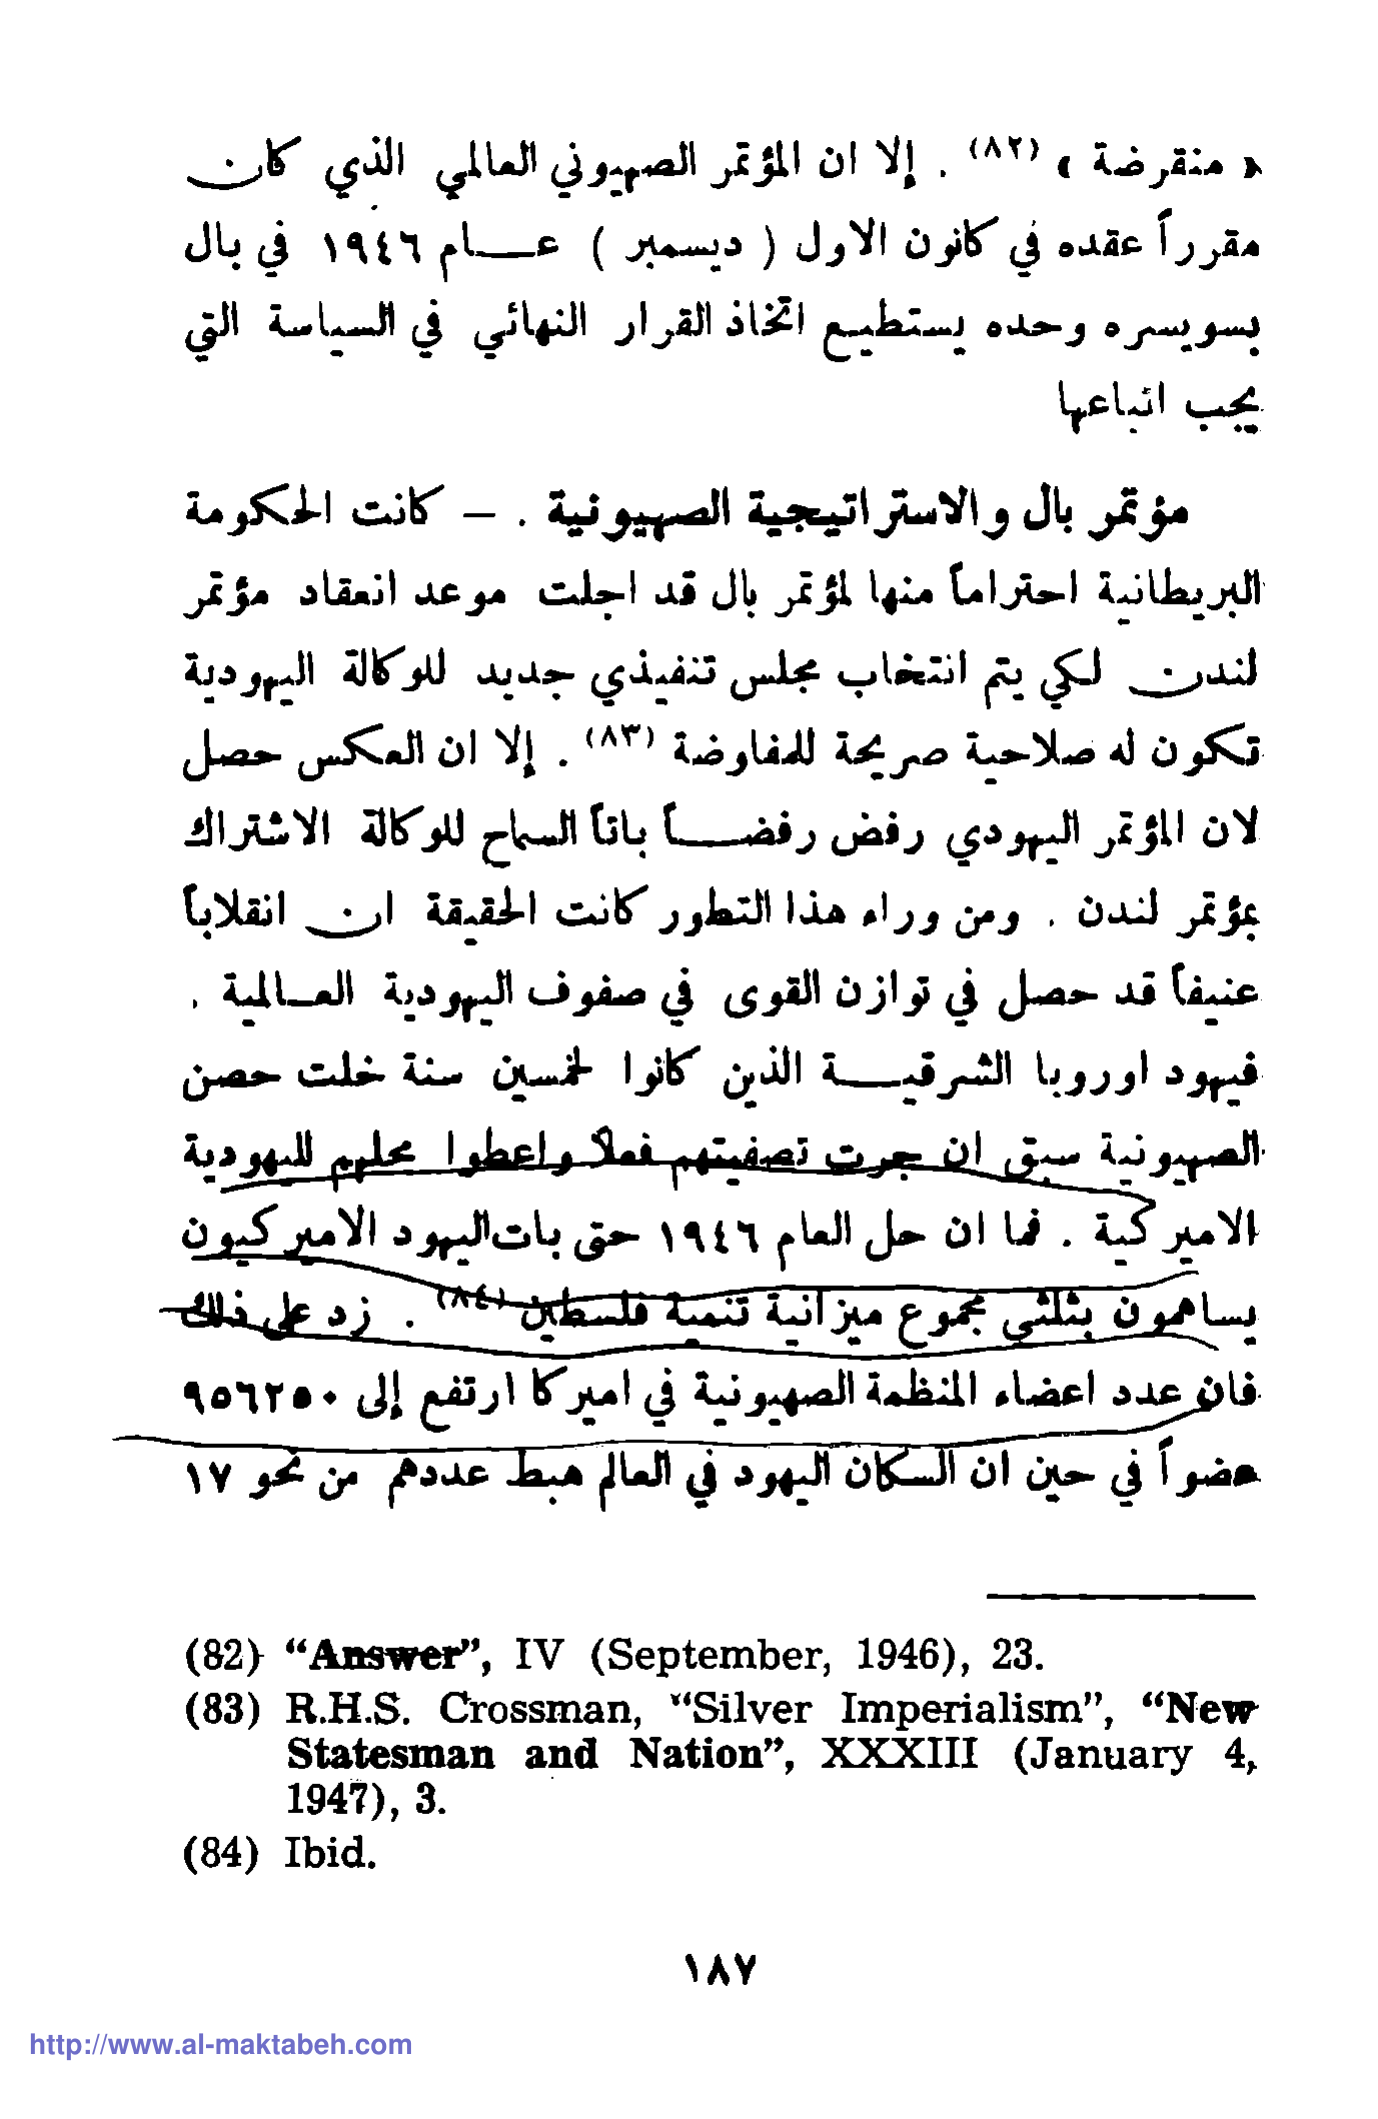 « منقرضة » (٨٢) . إلا ان المؤتمر الصهيوني العالمي الذي كان
مقرراً عقده في كانون الاول ( ديسمبر ) عـــام ١٩٤٦ في بال
بسويسره وحده يستطيع اتخاذ القرار النهائي في السياسة التي
يجب اتباعها
مؤتمر بال والاستراتيجية الصهيونية . – كانت الحكومة
البريطانية احتراماً منها لمؤتمر بال قد اجلت موعد انعقاد مؤتمر
لندن لكي يتم انتخاب مجلس تنفيذي جديد للوكالة اليهودية
تكون له صلاحية صريحة للمفاوضة (٨٣) . إلا ان العكس حصل
لان المؤتمر اليهودي رفض رفضـــاً باتاً السماح للوكالة الاشتراك
بمؤتمر لندن . ومن وراء هذا التطور كانت الحقيقة ان انقلاباً
عنيفاً قد حصل في توازن القوى في صفوف اليهودية العـالمية .
فيهود اوروبا الشرقيـــة الذين كانوا لخمسين سنة خلت حصن
الصهيونية سبق ان جرت تصفيتهم فعلاً واعطوا محلهم لليهودية
الاميركية . فما ان حل العام ١٩٤٦ حتى بات اليهود الاميركيون
يساهمون بثلثي مجموع ميزانية تنمية فلسطين (٨٤) . زد على ذلك
فان عدد اعضاء المنظمة الصهيونية في اميركا ارتفع إلى ٩٥٦٢٥٠
عضواً في حين ان السكان اليهود في العالم هبط عددهم من نحو ١٧
(82) “Answer”, IV (September, 1946), 23.
(83) R.H.S. Crossman, “Silver Imperialism”, “New
Statesman and Nation”, XXXIII (January 4,
1947), 3.
(84) Ibid.
١٨٧
http://www.al-maktabeh.com